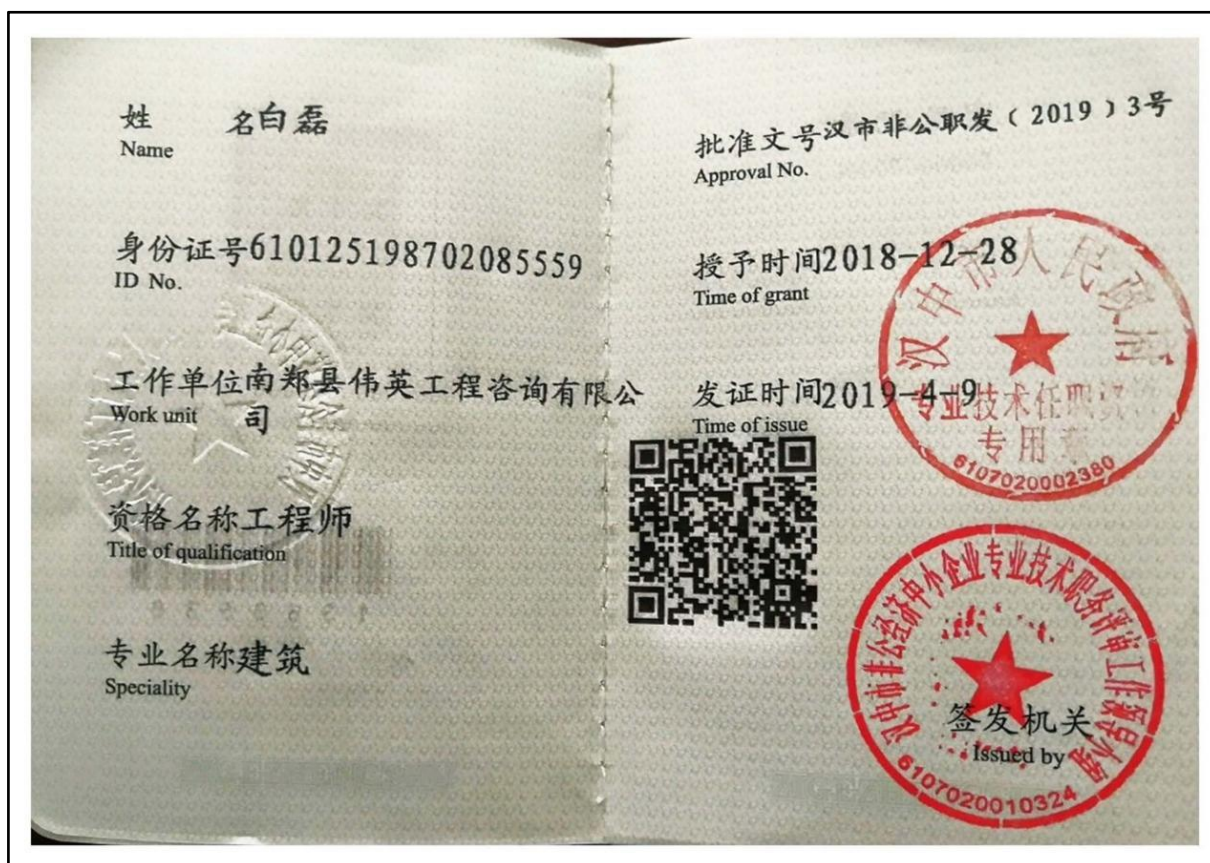 姓 名白磊
Name
身份证号610125198702085559
ID No.
工作单位南郑县伟英工程咨询有限公
Work unit 司
资格名称工程师
Title of qualification
专业名称建筑
Speciality
批准文号汉市非公职发（2019）3号
Approval No.
授予时间2018-12-28
Time of grant
发证时间2019-4-9
Time of issue
汉中市人民政府
专业技术任职资
专用章
6107020002380
汉中市非公经济中小企业专业技术职务评审工作领导小组
签发机关
Issued by
6107020010324